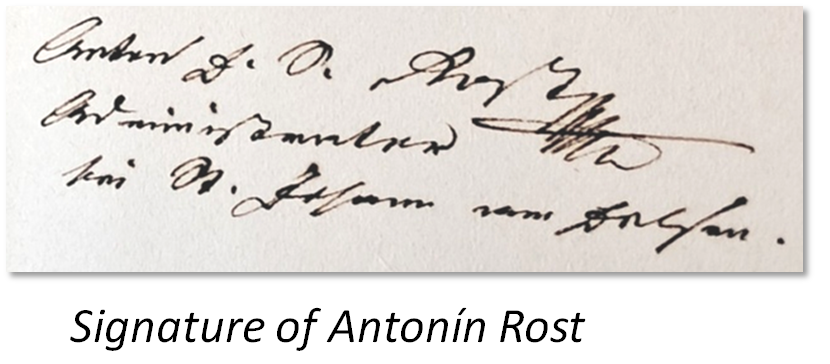 Anton J. N. Rost
Administrator
bei St. Johann am Felsen.
Signature of Antonín Rost